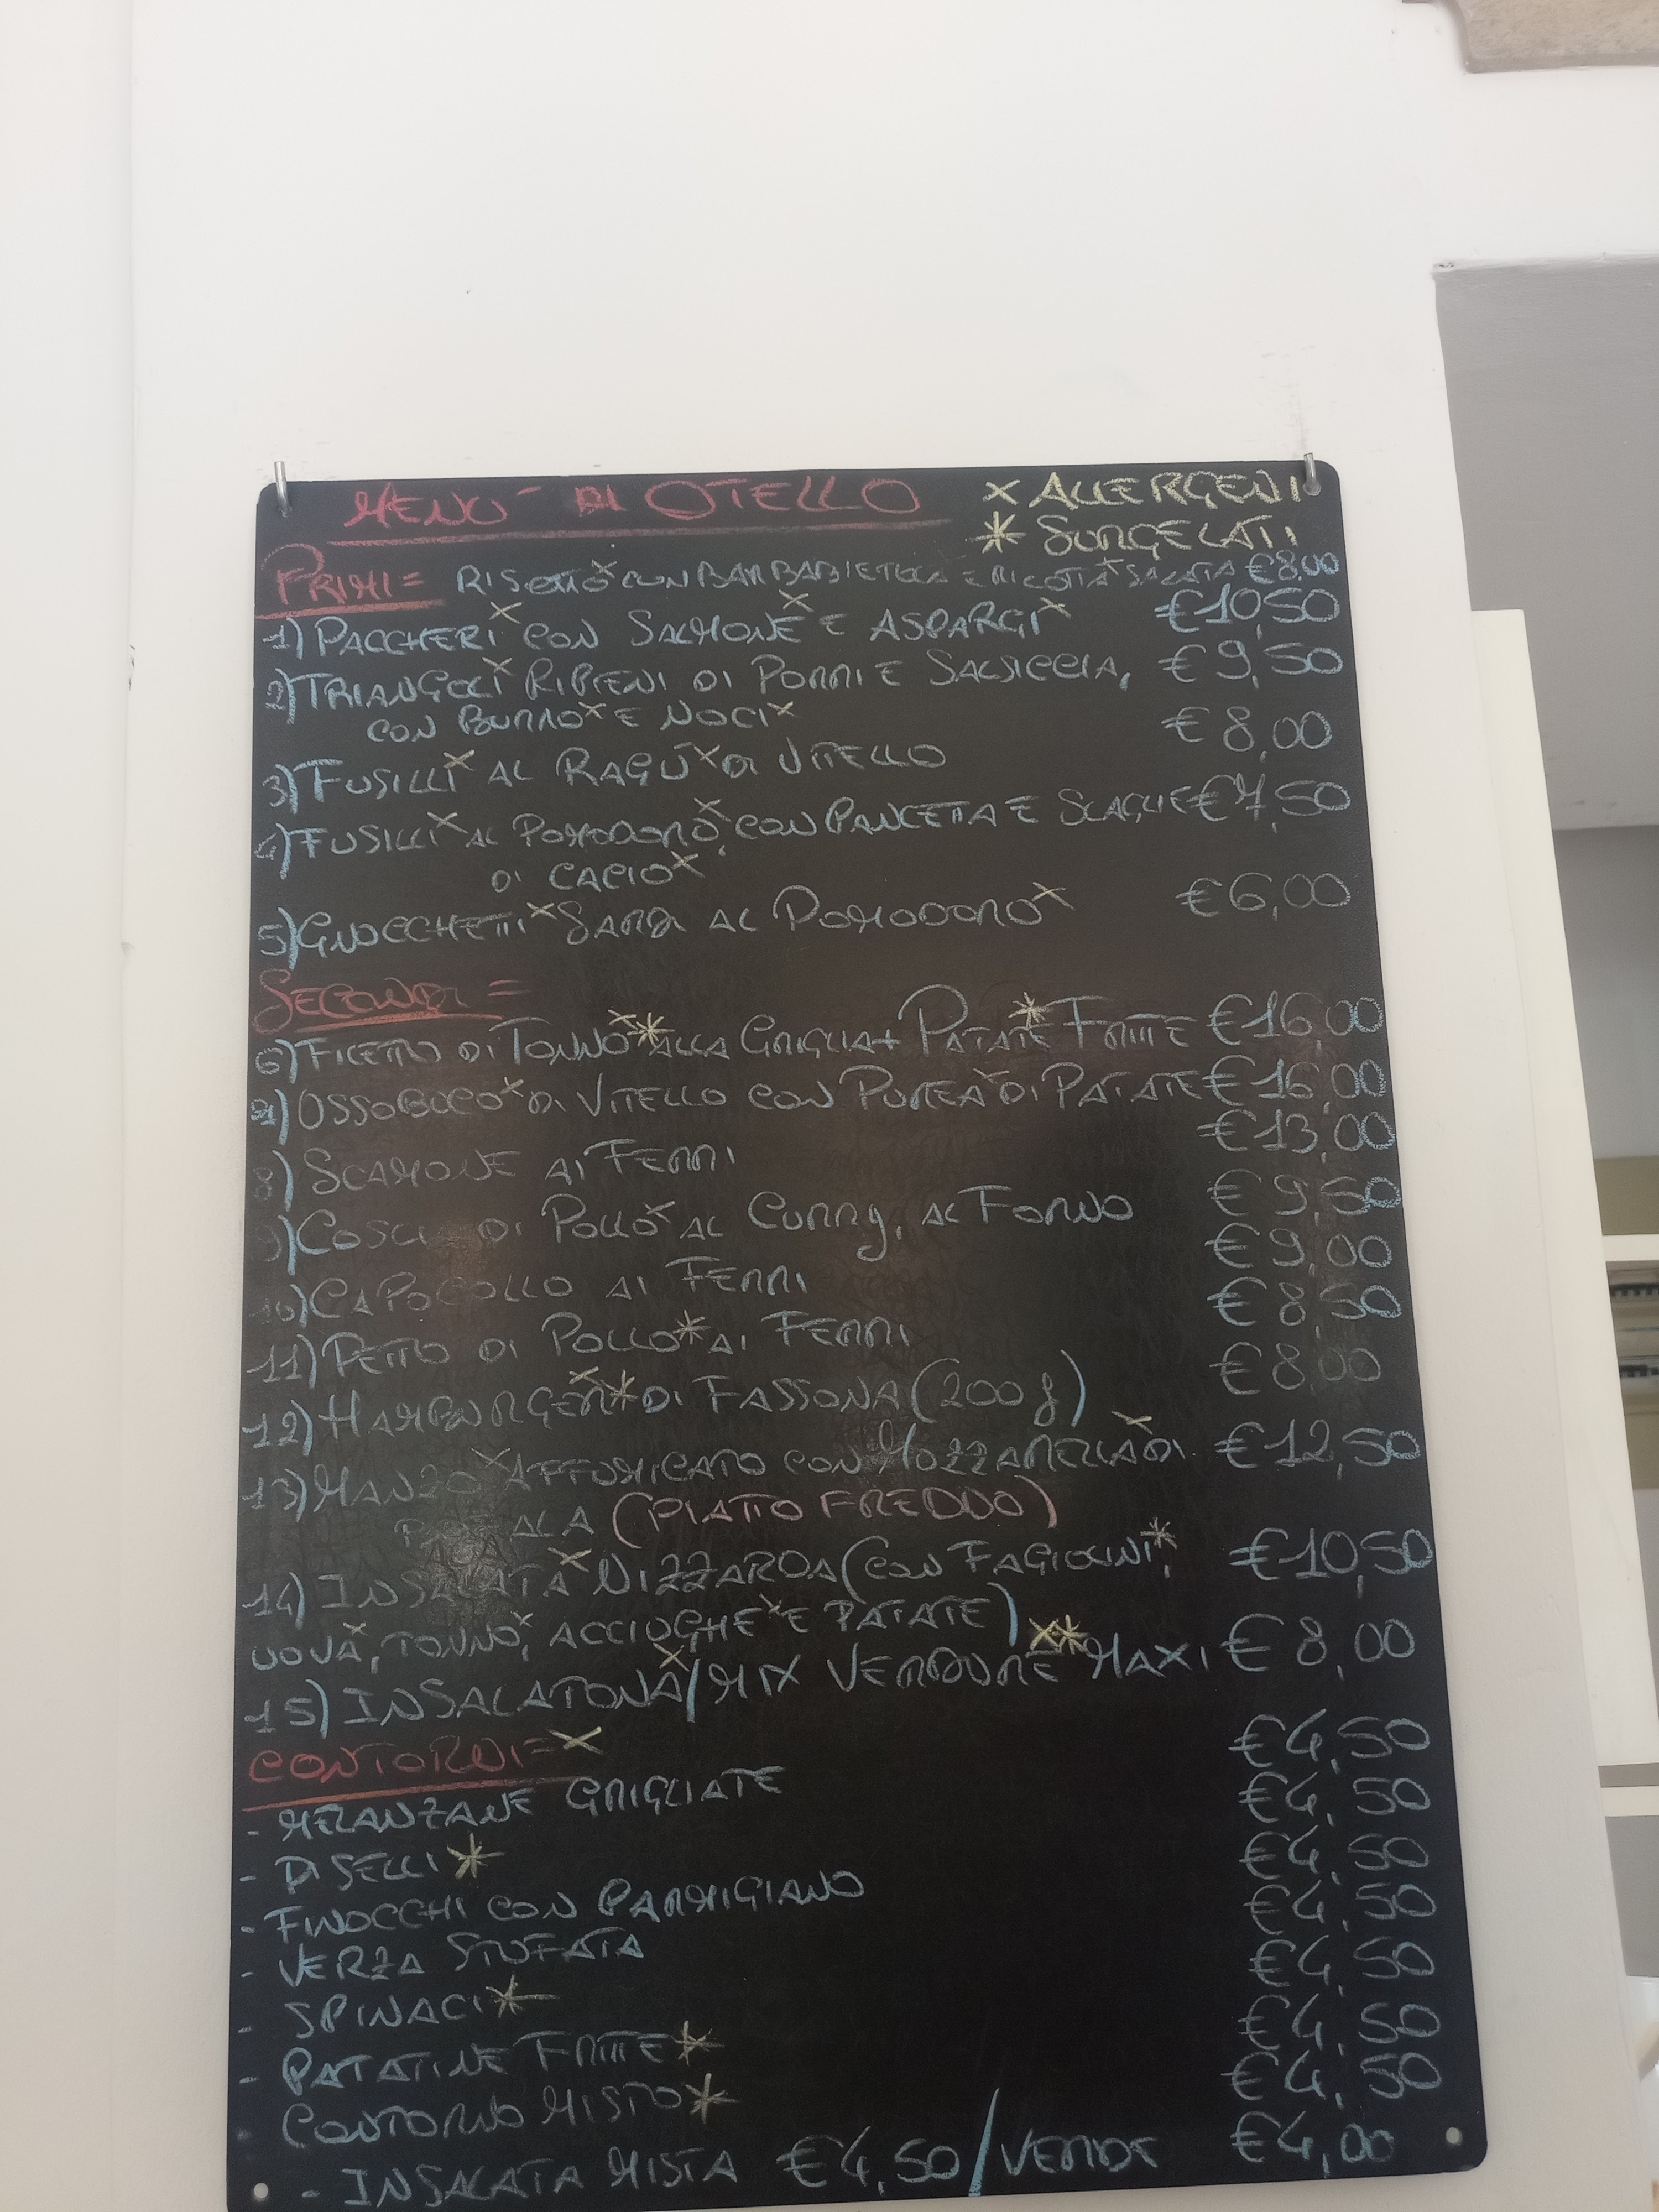 MENÙ DI OTELLO × ALLERGENI
* SURGELATI
PRIMI= RISOTTO× CON BARBABIETOLA E RICOTTA× SALATA €8,00
1) PACCHERI× CON SALMONE× E ASPARGI× €10,50
2) TRIANGOLI× RIPIENI DI PORRI E SALSICCIA, €9,50
CON BURRO× E NOCI×
3) FUSILLI× AL RAGÙ× DI VITELLO €8,00
4) FUSILLI× AL POMODORO×, CON PANCETTA E SCAGLIE €7,50
DI CACIO×
5) GNOCCHETTI× SARDI AL POMODORO× €6,00
SECONDI=
6) FILETTO DI TONNO×* ALLA GRIGLIA + PATATE* FRITTE €16,00
7) OSSOBUCO× DI VITELLO CON PUREA× DI PATATE €16,00
8) SCAMONE AI FERRI €13,00
9) COSCIA DI POLLO× AL CURRY, AL FORNO €9,50
10) CAPOCOLLO AI FERRI €9,00
11) PETTO DI POLLO* AI FERRI €8,50
12) HAMBURGER×* DI FASSONA (200 g) €8,00
13) MANZO× AFFUMICATO CON MOZZARELLA× DI €12,50
(PIATTO FREDDO)
14) INSALATA× NIZZARDA (CON FAGIOLINI*, €10,50
UOVA×, TONNO×, ACCIUGHE× E PATATE)
15) INSALATONA×/MIX VERDURE×* MAXI €8,00
CONTORNI=×
- MELANZANE GRIGLIATE €4,50
- PISELLI* €4,50
- FINOCCHI CON PARMIGIANO €4,50
- VERZA STUFATA €4,50
- SPINACI* €4,50
- PATATINE FRITTE* €4,50
- CONTORNO MISTO* €4,50
- INSALATA MISTA €4,50/VERDE €4,00